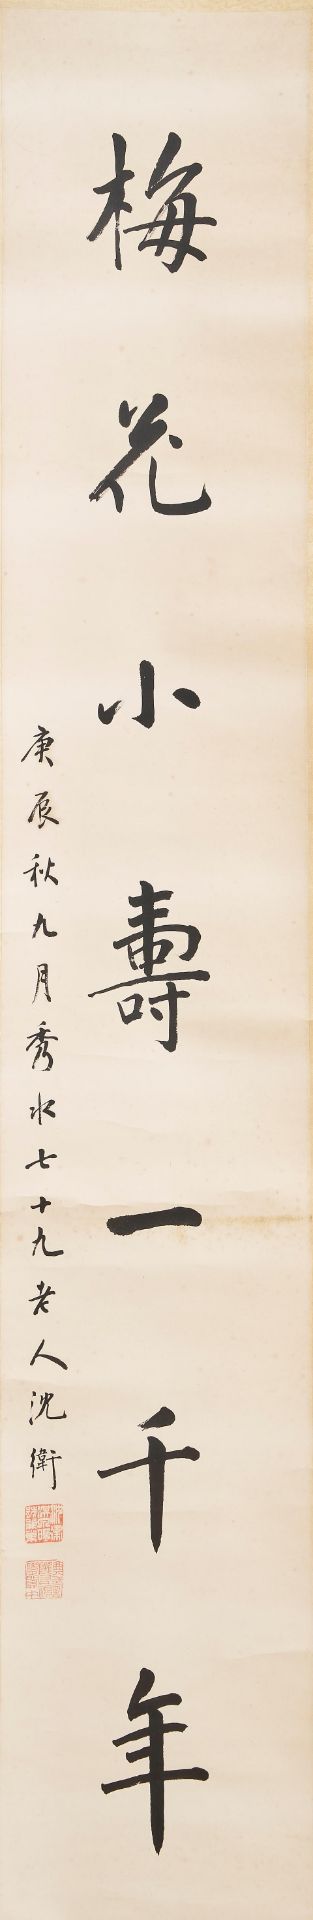 梅花小壽一千年
庚辰秋九月秀水七十九老人沈衛